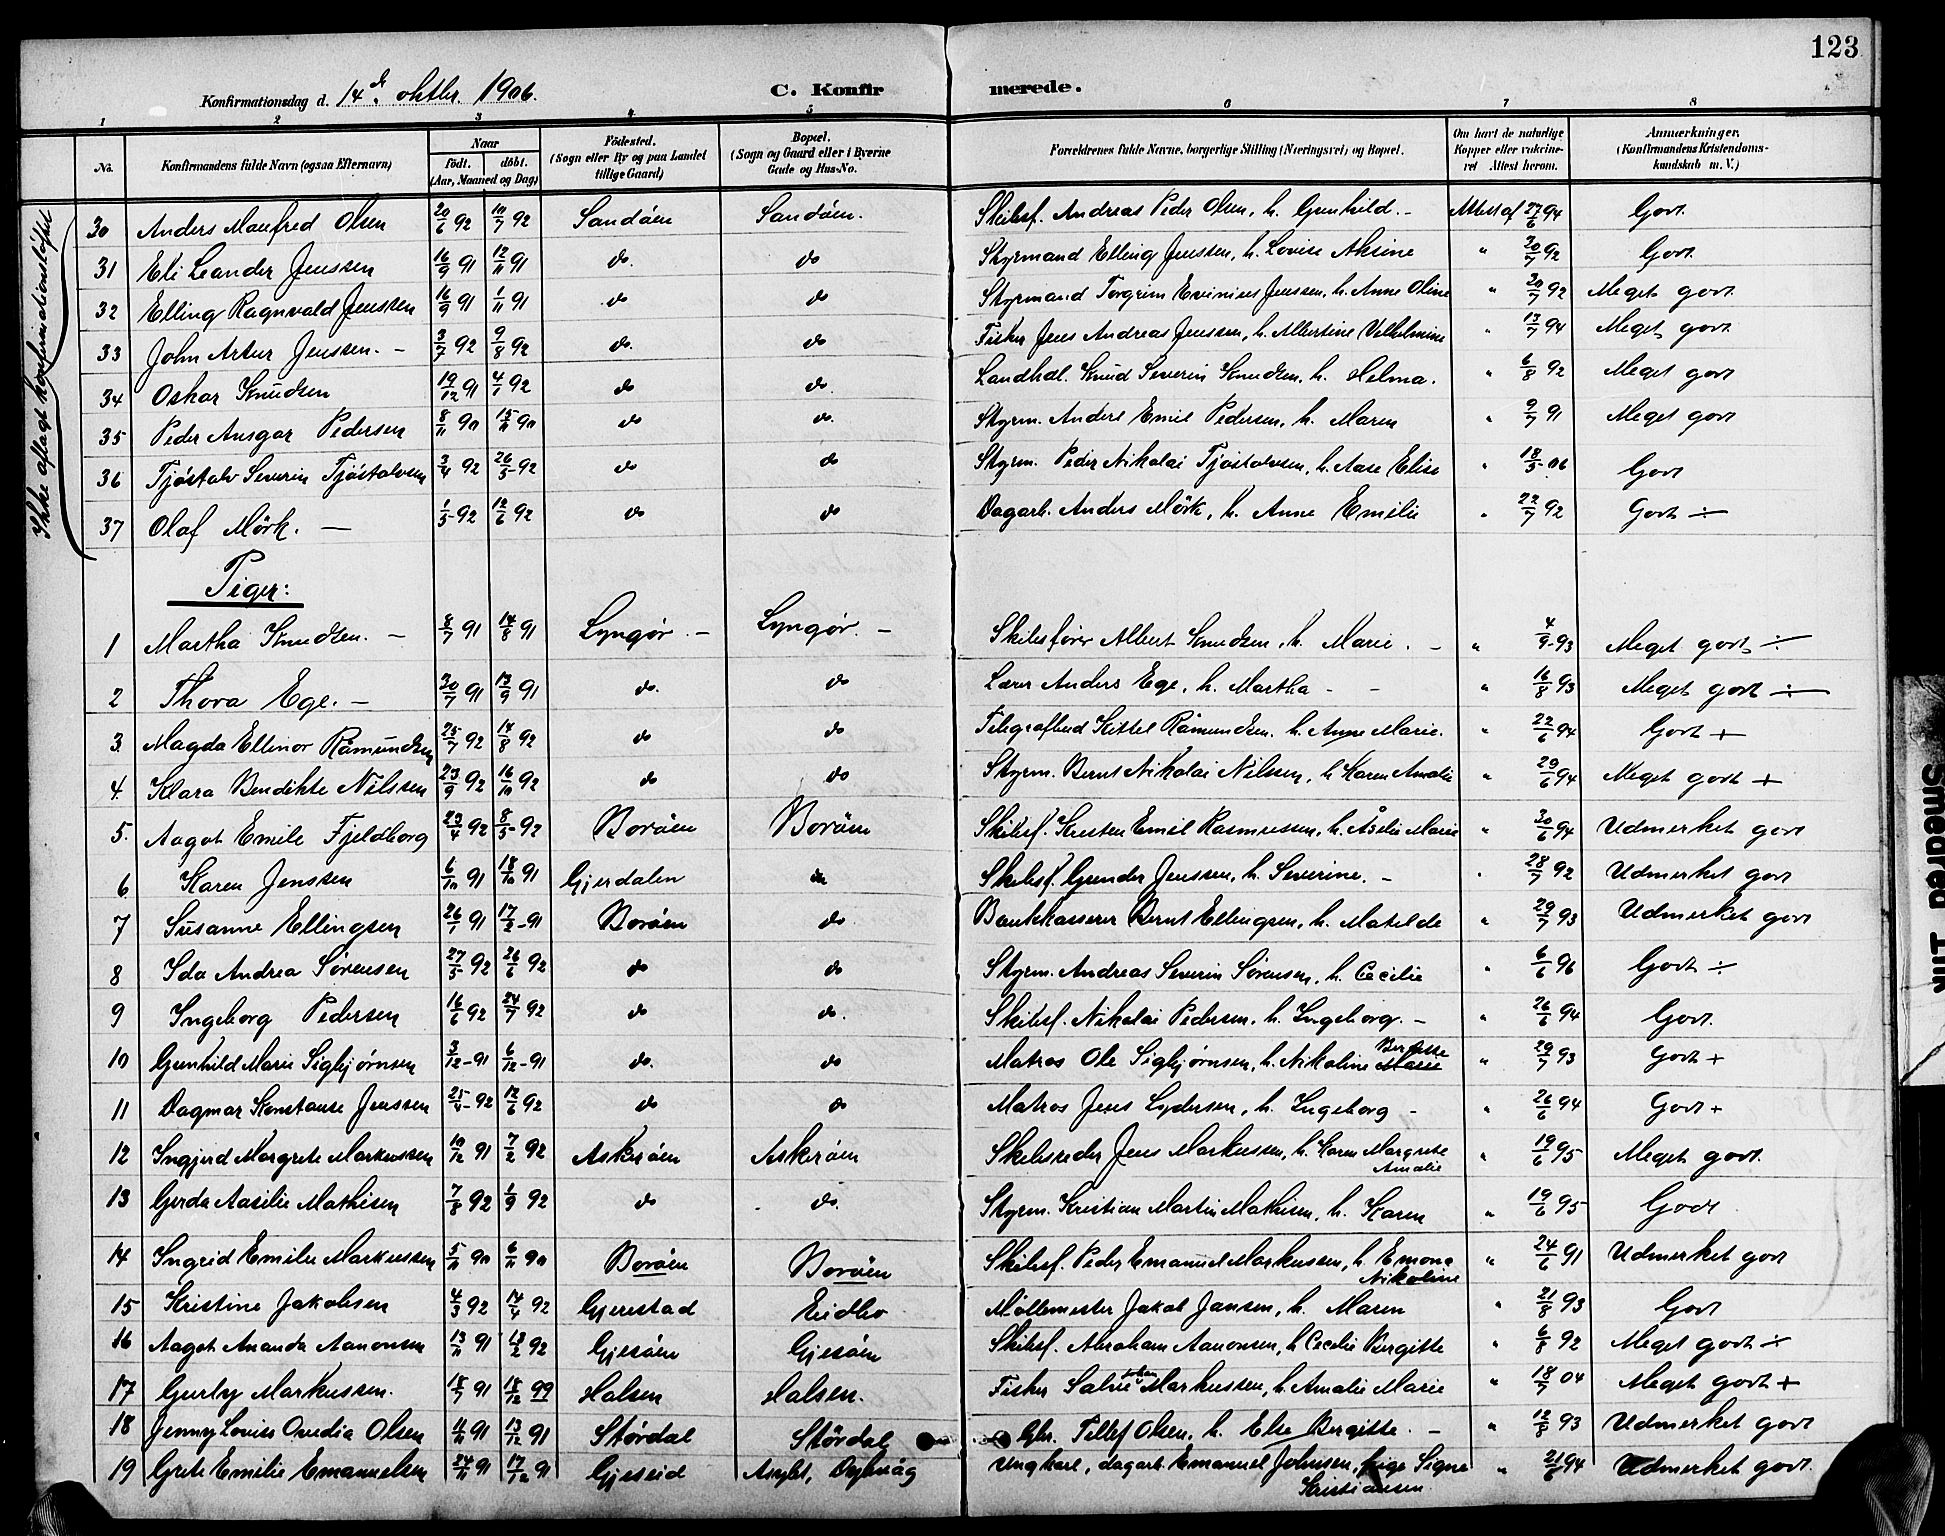 123
Konfirmationsdag d. 14de oktbr. 1906. C. Konfirmerede.
1 2 3 4 5 6 7 8
No. Konfirmandens fulde Navn (ogsaa Efternavn) Naar födt. döbt. (Aar, Maaned og Dag) Födested. (Sogn eller By og paa Landet tillige Gaard) Bopæl. (Sogn og Gaard eller i Byerne Gade og Hus-No. Forældrenes fulde Navne, borgerlige Stilling (Næringsvei) og Bopæl. Om havt de naturlige Kopper eller vakcineret Attest herom. Anmerkninger. (Konfirmandens Kristendomskundskab m. V.)
Ikke aflagt konfirmationsløftet
30 Anders Manfred Olsen 20/6 92 10/7 92 Sandöen Sandöen. Skibsf. Andreas Peder Olsen, h. Gunhild. - Attest af 27/6 94 Godt.
31 Eli Leander Jenssen 16/9 91 12/11 91 do. do Styrmand Elling Jenssen, h. Lovise Aksine " 20/7 92 Godt.
32 Elling Ragnvald Jenssen 16/9 91 1/11 91 do do Styrmand Torgrim Evinius Jenssen, h. Anne Oline " 20/7 92 Meget godt.
33 John Artur Jenssen. - 3/7 92 9/8 92 do. do Fisker Jens Andreas Jenssen, h. Albertine Vilhelmine " 13/7 94 Meget godt.
34 Oskar Knudsen 19/12 91 4/1 92 do do. Landhdl. Knud Severin Knudsen, h. Helma. " 6/8 92 Meget godt
35 Peder Ansgar Pedersen 8/11 90 15/11 90 do do. Styrm. Anders Emil Pedersen, h. Maren " 9/7 91 Meget godt
36 Tjöstolv Severin Tjöstolvsen 3/4 92 26/5 92 do do Styrm. Peder Nikolai Tjöstolvsen, h. Aase Elise " 18/5 06 Godt
37 Olaf Mörk. - 1/5 92 12/6 92 do do Dagarb. Anders Mörk, h. Anne Emilie " 22/7 92 Godt ÷
Piger:
1 Martha Knudsen. - 8/7 91 14/8 91 Lyngör. - Lyngör. - Skibsfører Albert Knudsen, h. Marie. - " 4/9 93 Meget godt ÷
2 Thora Ege. - 30/7 91 13/9 91 do. do Lærer Anders Ege, h. Martha - - " 16/8 93 Meget godt ÷
3. Magda Ellinor Råmundsen 25/7 92 14/8 92 do do Telegrafbud Kittel Råmundsen. h. Anne Marie. " 22/6 94 Godt +
4. Klara Bendikte Nilssen 23/9 92 16/10 92 do do Styrm. Bernt Nikolai Nilssen, h Karen Amalie " 29/6 94 Meget godt +
5. Aagot Emile Fjeldborg 23/4 92 8/5 92 Boröen Boröen Skibsf. Kresten Emil Rasmussen, h. Åselie Marie " 30/6 94 Udmerket godt
6 Karen Jenssen 6/10 91 18/10 91 Gjerdalen Skibsf. Gunder Jenssen, h. Severine. - " 28/7 92 Udmerket godt
7 Susanne Ellingsen 26/1 91 17/2 91 Boröen do. Bankkasserer Bernt Ellingsen, h. Matilde " 29/7 93 Udmerket godt
8 Ida Andrea Sörensen 27/5 92 26/6 92 do do Styrm. Andreas Severin Sörensen, h. Cecilie " 6/6 96 Godt ÷
9 Ingeborg Pedersen 16/6 92 24/7 92 do do. Skibsf. Nikolai Pedersen, h. Ingeborg. - " 26/6 94 Godt.
10 Gunhild Marie Sigbjørnsen 3/12 91 6/12 91 do. do Matros Ole Sigbjørnsen, h. Nikoline Bergitte Marie " 29/7 93 Godt +
11 Dagmar Konstanse Jenssen 25/4 92 12/6 92 do do Matros Jens Lydersen, h. Ingeborg - " 26/6 94 Godt +
12 Ingjerd Margrete Markussen 10/12 91 7/2 92 Askeröen Askeröen Skibsreder Jens Markussen, h. Karen Margrete Amalie " 19/6 95 Meget godt.
13 Gerda Aaselie Mathisen 7/8 92 1/9 92 do do. Styrm. Kristian Martin Mathisen, h. Karen " 19/6 95 Godt
14 Ingrid Emilie Markussen 5/11 90 6/11 90 Boröen Boröen Skibsf. Peder Emanuel Markussen, h. Emone Nikoline " 24/6 91 Udmerket godt
15 Kristine Jakobsen 4/3 92 14/4 92 Gjerestad Eidbo Møllemester Jakob Jansen, h. Maren " 21/8 93 Godt
16 Aagot Ananda Aanonsen 13/11 91 13/2 92 Gjesöen Gjesöen Skibsf. Abraham Aanonsen, h Cecilie Bergitte " 6/8 92 Meget godt ÷
17 Gurly Markussen. 18/7 91 18/12 99 Halsen Halsen. Fisker Salve Markussen, h. Amalie Marie " 18/7 04 Meget godt +
18 Jenny Lovise Ovedia Olsen 11/11 91 13/12 91 Stördal Stördal Gbr. Tellef Olsen, h. Else Bergitte. - " 12/8 93 Udmerket godt
19 Grete Emilie Emanuelsen 24/11 91 17/12 91 Gjeseid Asylet, Dybvåg ungkarl, dagarb. Emanuel Johnsen, pige Signe Kristiansen. " 21/6 94 Udmerket godt.